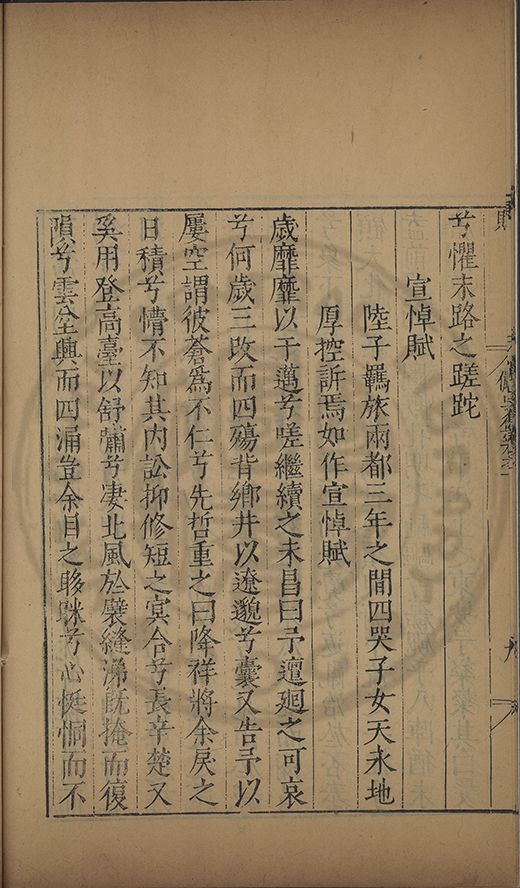 兮懼末路之蹉跎
宣悼賦
陸子羈旅兩都三年之間四哭子女天永地
厚控訴焉如作宣悼賦
歲靡靡以于邁兮嗟繼續之未昌曰予邅迴之可哀
兮何歲三改而四殤背鄉井以遼邈兮囊又告予以
屢空謂彼蒼為不仁兮先哲重之曰降祥將余戾之
日積兮懵不知其內訟抑修短之冥合兮長辛楚又
奚用登高臺以舒嘯兮凄北風於襞縫涕既掩而復
隕兮雲坌興而四涌豈余目之眵眯兮心恇恫而不